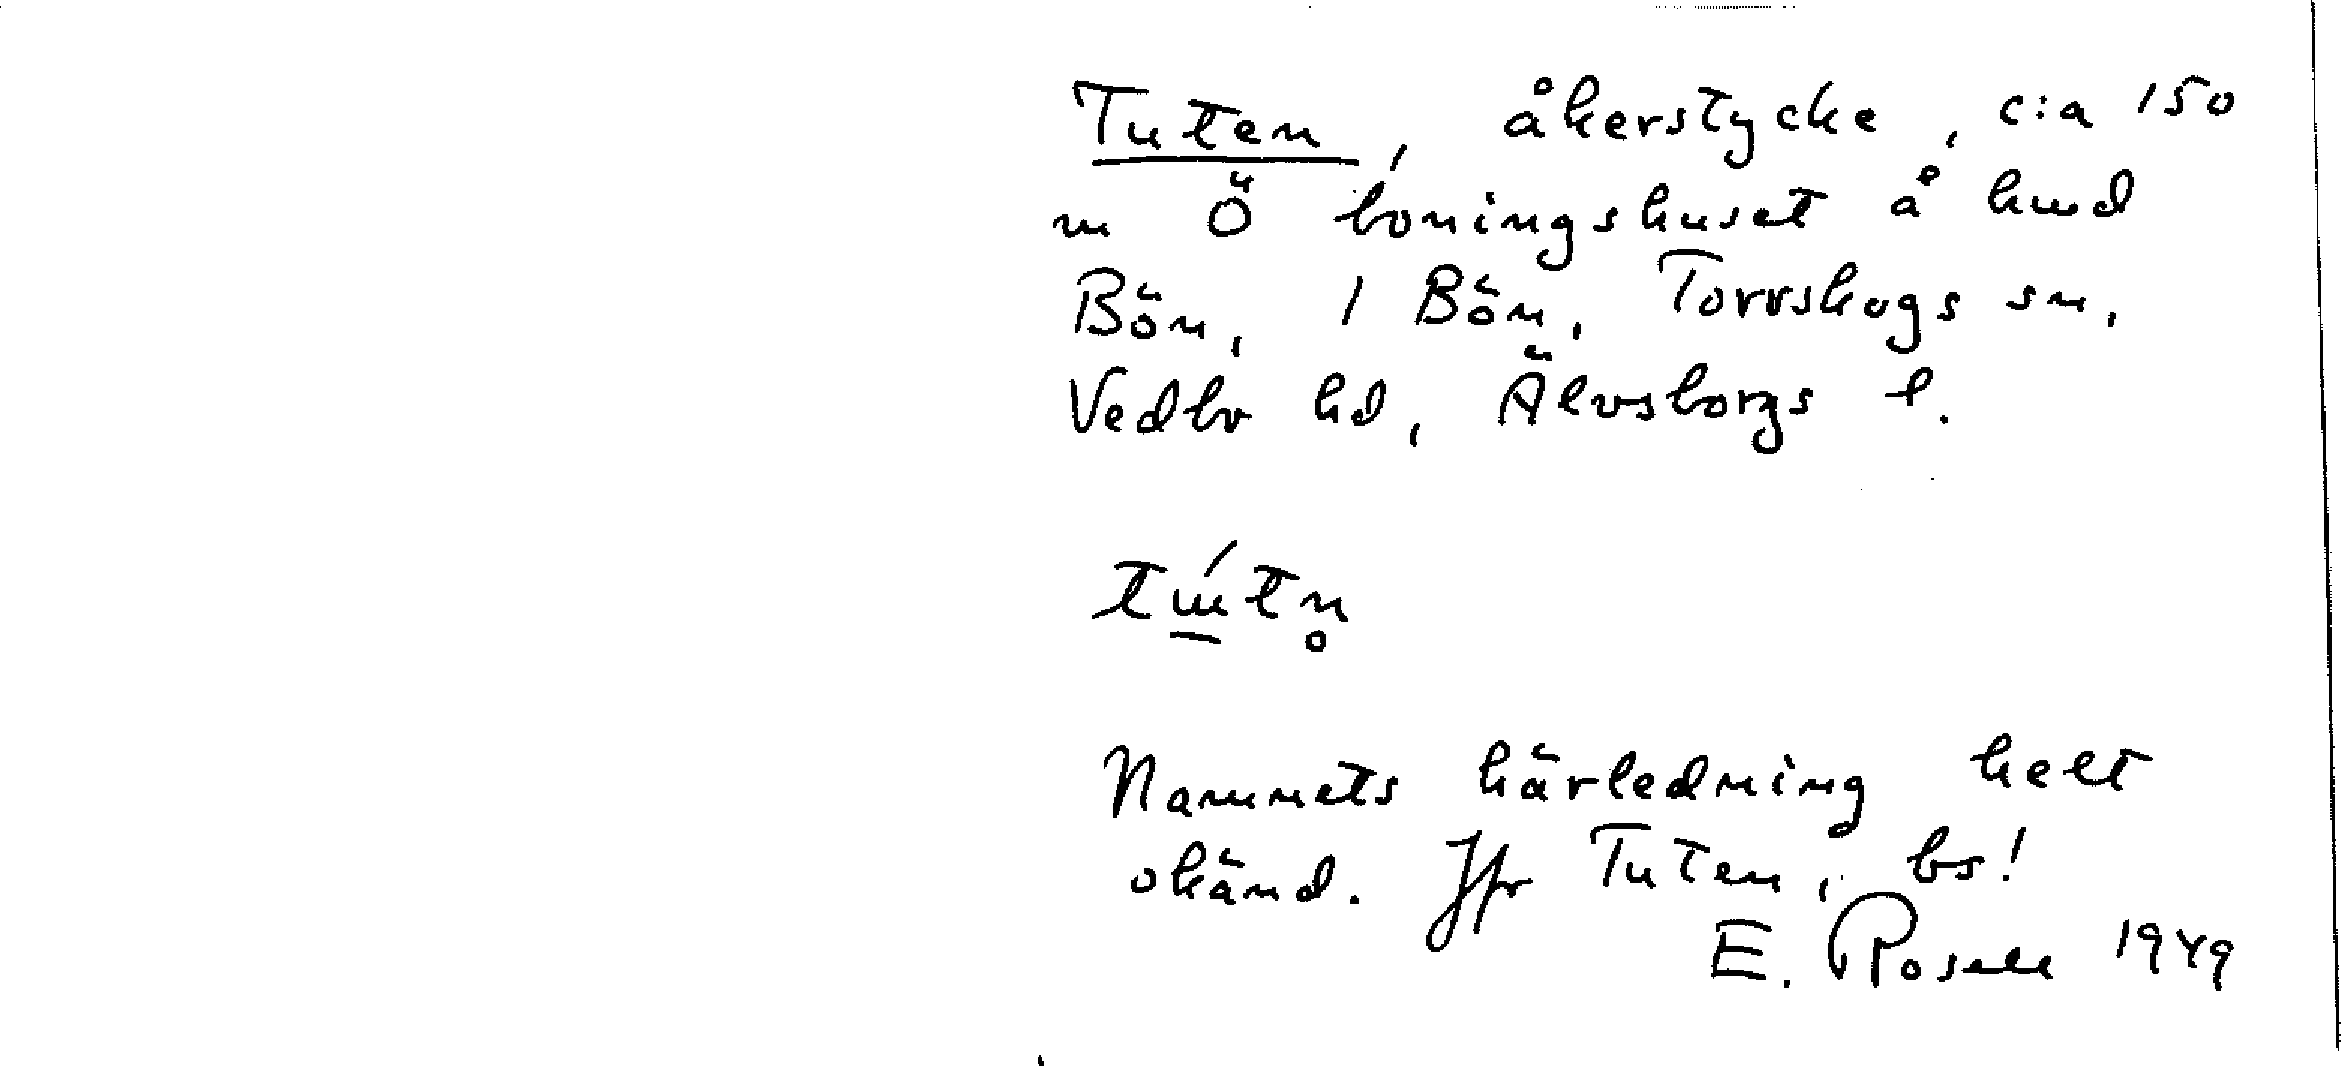 Tuten, åkerstycke, c:a 150
m Ö boningshuset å hmd
Bön, 1 Bön, Torrskogs sn,
Vedbo hd, Älvsborgs l.
tút n̥
Namnets härledning helt
okänd. Jfr Tuten, bs!
E. Rosell 1949